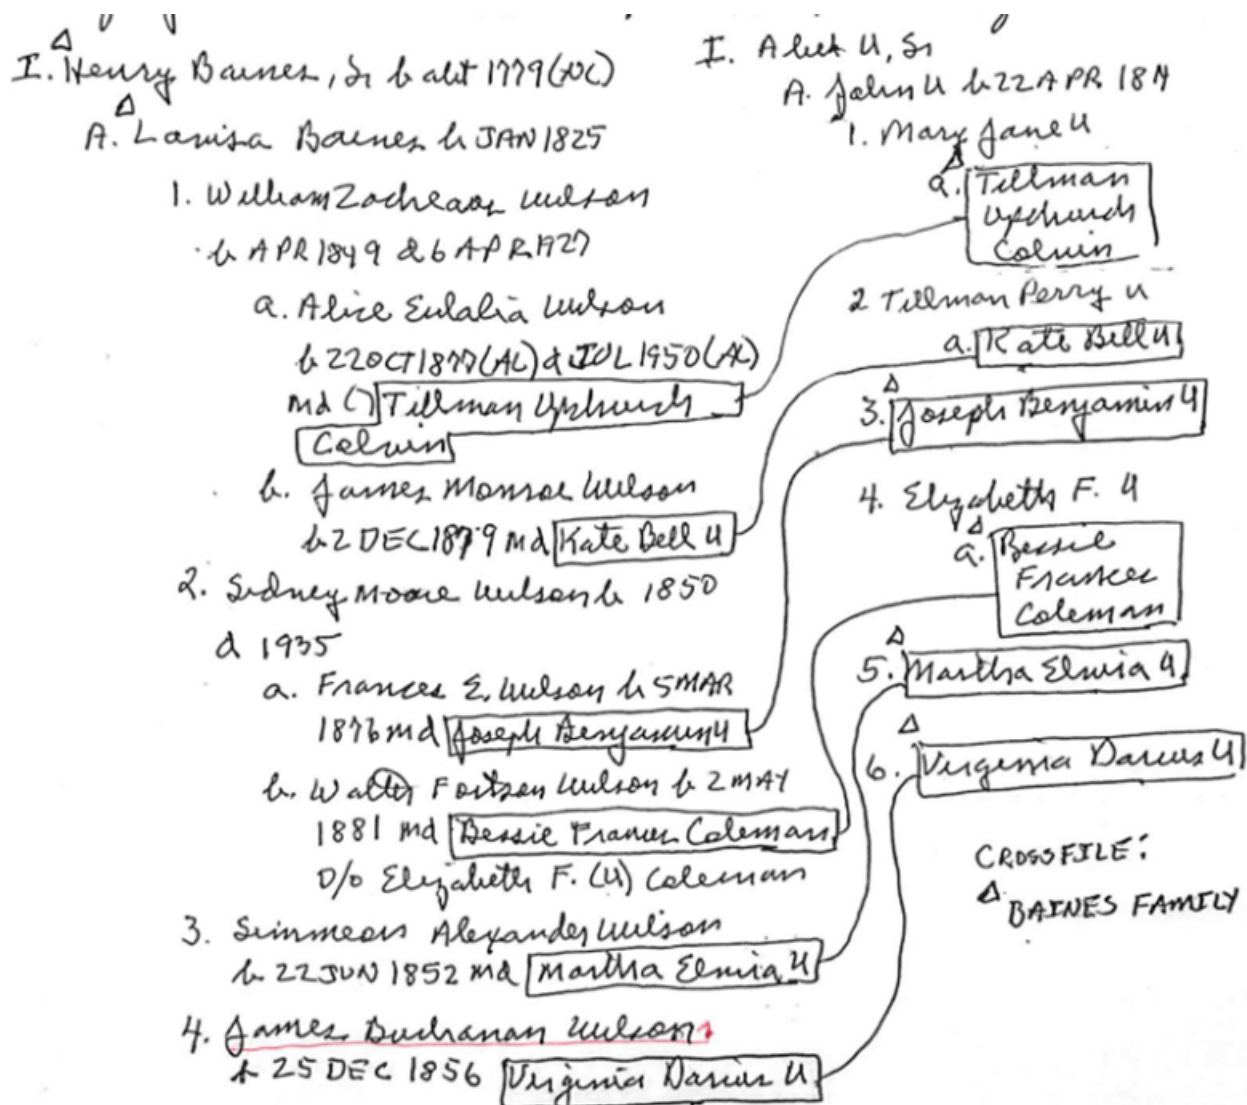 I. Henry Baines, Sr b abt 1779 (NC)
A. Lavisa Baines b JAN 1825
1. William Zacheaus Wilson
b APR 1849 d 6 APR 1927
a. Alice Eulalia Wilson
b 22 OCT 1877 (AL) d JUL 1950 (AL)
md () Tillman Upchurch
Colvin
b. James Monroe Wilson
b 2 DEC 1879 md Kate Bell U
2. Sidney Moore Wilson b 1850
d 1935
a. Frances E. Wilson b 5 MAR
1876 md Joseph Benjamin U
b. Walter Fortson Wilson b 2 MAY
1881 md Bessie Frances Coleman
D/O Elizabeth F. (U) Coleman
3. Simmeon Alexander Wilson
b. 22 JUN 1852 md Martha Elmia U
4. James Buchanan Wilson
b 25 DEC 1856 Virginia Darius U
I. U, Sr
A. John U b 22 APR
1. Mary Jane U
a. Tillman
Upchurch
Colvin
2 Tillman Perry U
a. Kate Bell U
3. Joseph Benjamin U
4. Elizabeth F. U
a. Bessie
Frances
Coleman
5. Martha Elmia U
6. Virginia Darius U
CROSSFILE:
Δ BAINES FAMILY